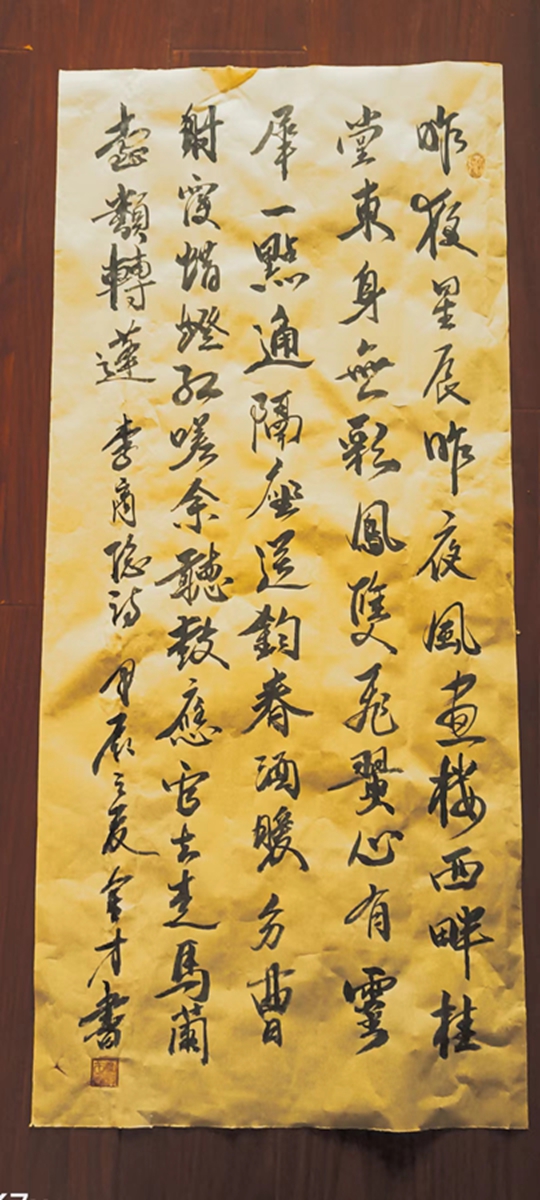 昨夜星辰昨夜風畫樓西畔桂
堂東身無彩鳳雙飛翼心有靈
犀一點通隔座送鈎春酒暖分曹
射覆蜡燈紅嗟余聽鼓應官去走馬蘭
臺類轉蓬 李商隱詩 甲辰之夏金才書